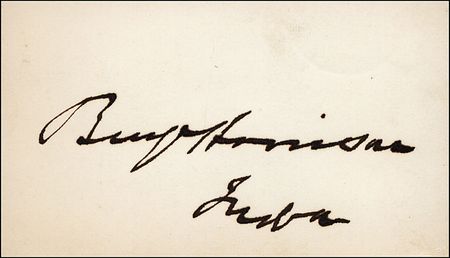 Benj Harrison
Inda